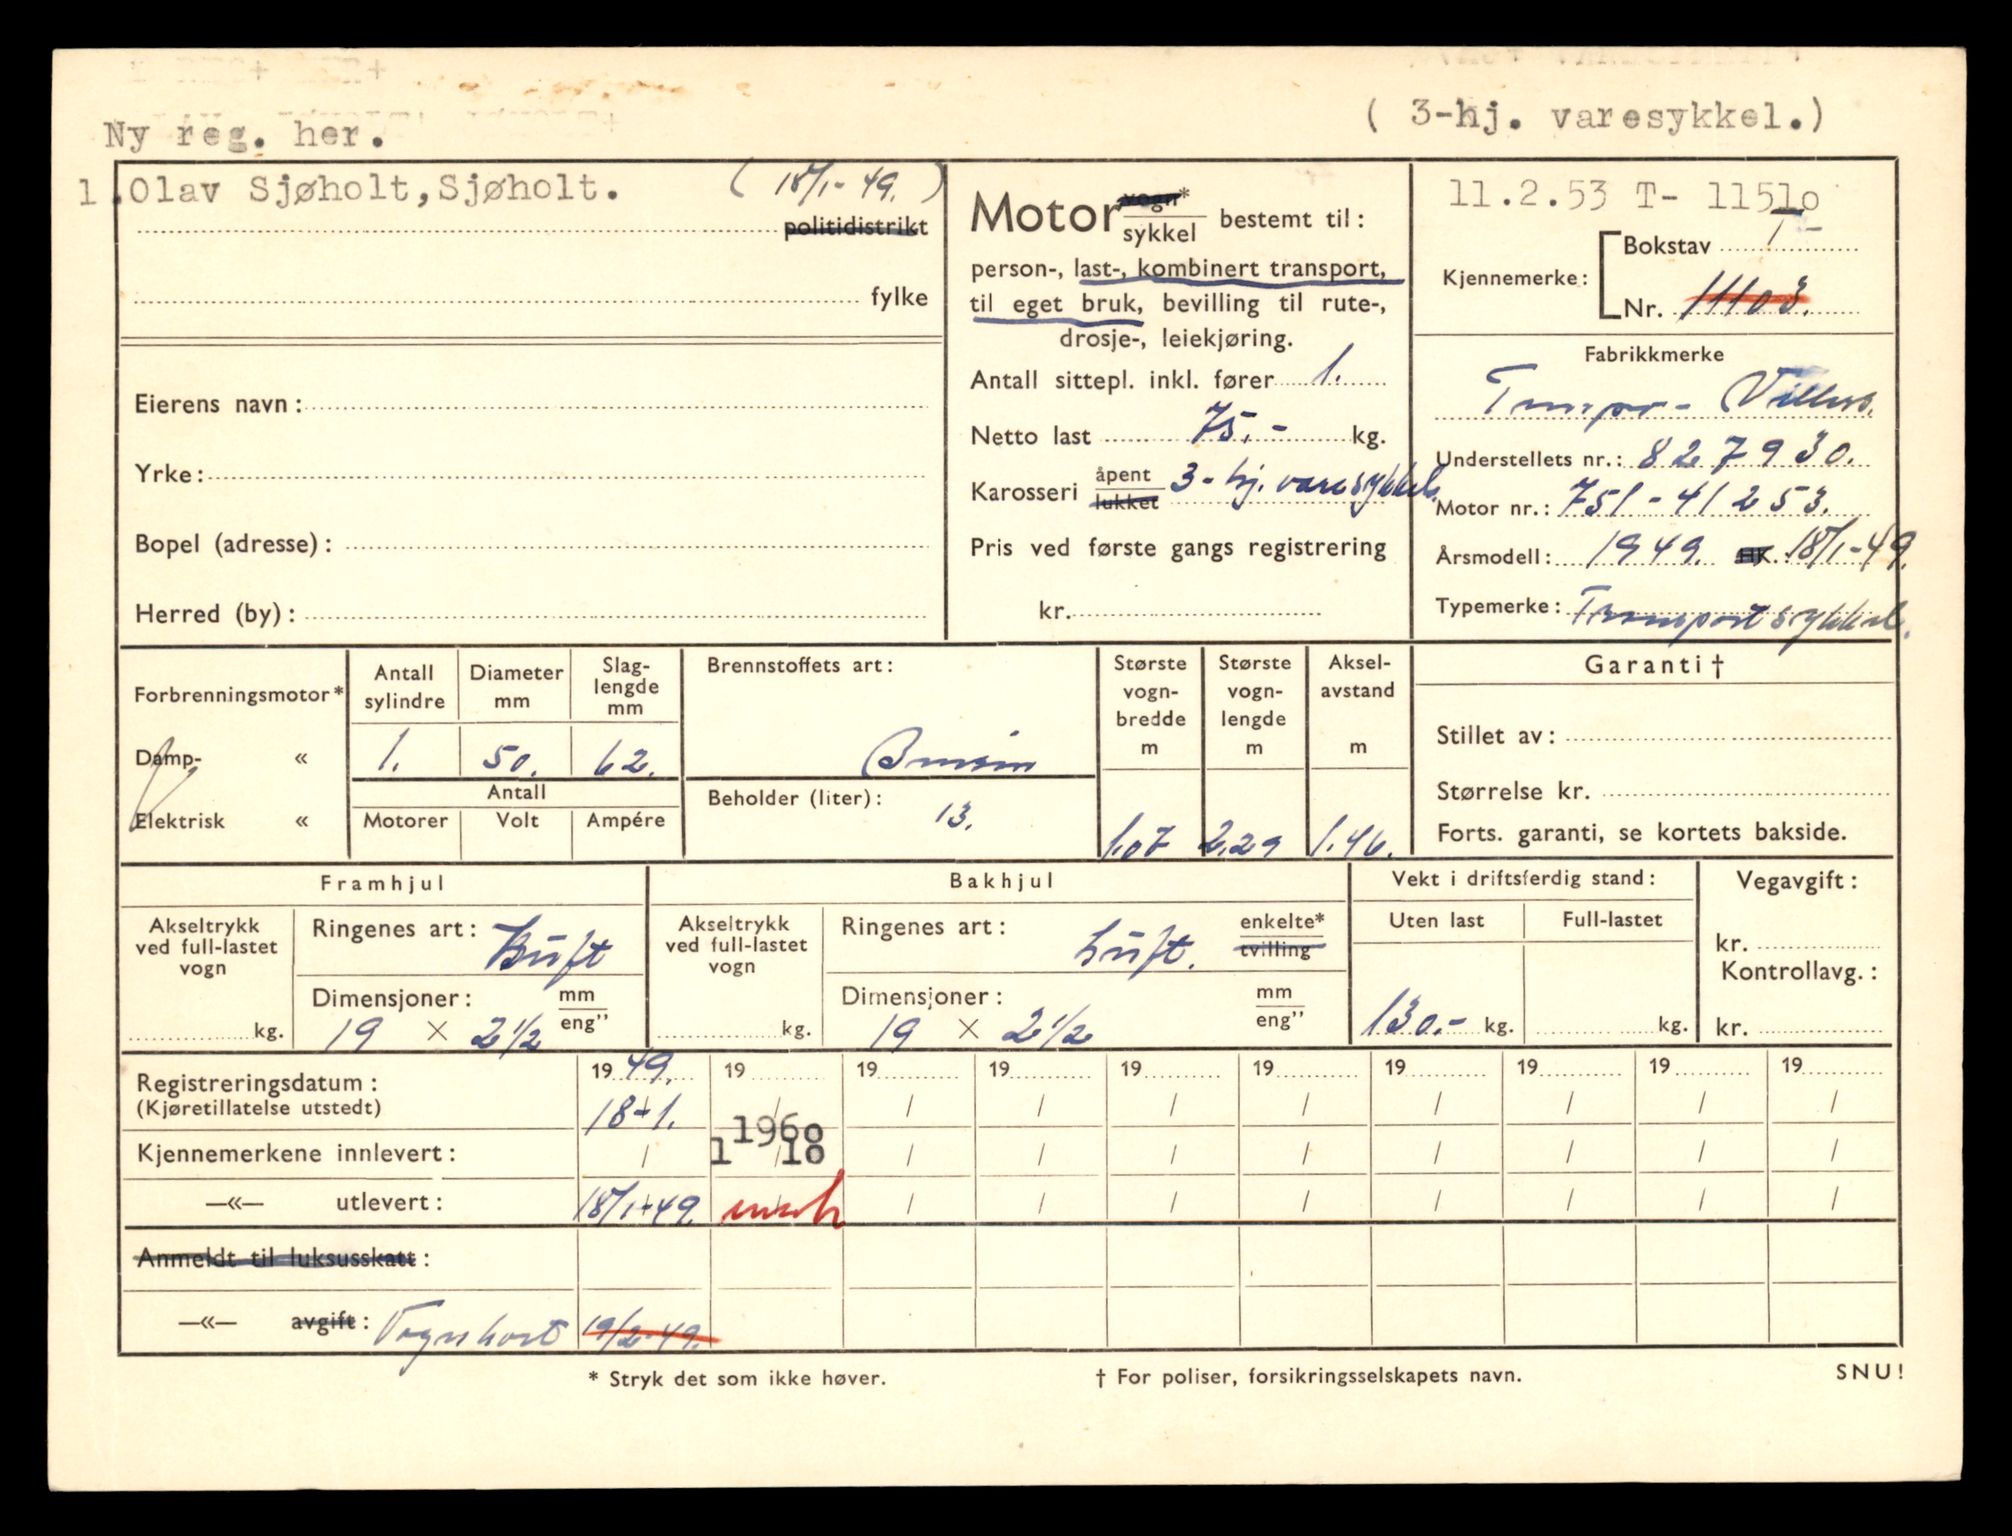 ( 3-hj. varesykkel.)
Ny reg. her.
1.Olav Sjøholt,Sjøholt. ( 18/1-49. )
politidistrikt
fylke
Eierens navn:
Yrke:
Bopel (adresse):
Herred (by):
Motor vogn* sykkel bestemt til:
person-, last-, kombinert transport,
til eget bruk, bevilling til rute-,
drosje-, leiekjøring.
Antall sittepl. inkl. fører 1.
Netto last 75.- kg.
Karosseri åpent lukket 3-hj. varesykkel.
Pris ved første gangs registrering
kr.
11.2.53 T- 1151o
Kjennemerke: Bokstav T-
Nr. 11103.
Fabrikkmerke
Tempo - Villiers.
Understellets nr.: 827930.
Motor nr.: 751-41253.
Årsmodell: 1949. HK. 18/1-49.
Typemerke: Transportsykkel.
Forbrenningsmotor*
Damp- «
Elektrisk «
Antall sylindre
1.
Diameter mm
50.
Slag-lengde mm
62.
Antall
Motorer Volt Ampére
Brennstoffets art:
Bensin
Beholder (liter):
13.
Største vogn-bredde m
1.07
Største vogn-lengde m
2.29
Aksel-avstand m
1.46.
Garanti †
Stillet av:
Størrelse kr.
Forts. garanti, se kortets bakside.
Framhjul
Akseltrykk ved full-lastet vogn
kg.
Ringenes art: Luft
Dimensjoner: mm eng”
19 × 2 1/2
Bakhjul
Akseltrykk ved full-lastet vogn
kg.
Ringenes art: Luft. enkelte* tvilling
Dimensjoner: mm eng”
19 × 2 1/2
Vekt i driftsferdig stand:
Uten last Full-lastet
130.- kg. kg.
Vegavgift:
kr.
Kontrollavg.:
kr.
Registreringsdatum: 19 49. 19 19 19 19 19 19 19 19 19
(Kjøretillatelse utstedt) 18-1. / / / / / / / / /
1960
Kjennemerkene innlevert: / 1 / 10 / / / / / / / /
—«— utlevert: 18/1-49. / / / / / / / /
Anmeldt til luksusskatt:
—«— avgift: Vognkort 19/2-49.
* Stryk det som ikke høver.
† For poliser, forsikringsselskapets navn.
SNU!